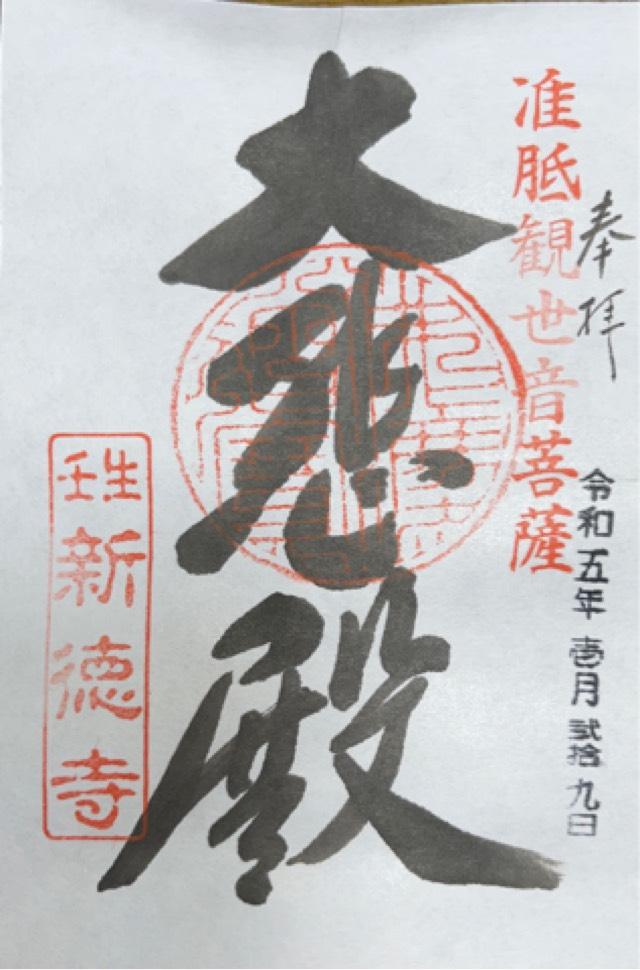 奉拝
准胝観世音菩薩
令和五年 壱月 弐拾九日
大悲殿
壬生
新徳寺